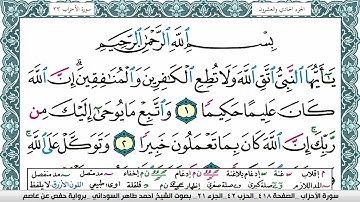 الجزء الحادي والعشرون
سورة الأحزاب ٣٣
بِسْمِ ٱللَّهِ ٱلرَّحْمَٰنِ ٱلرَّحِيمِ
يَٰٓأَيُّهَا ٱلنَّبِيُّ ٱتَّقِ ٱللَّهَ وَلَا تُطِعِ ٱلْكَٰفِرِينَ وَٱلْمُنَٰفِقِينَۗ إِنَّ ٱللَّهَ
كَانَ عَلِيمًا حَكِيمًا ١ وَٱتَّبِعْ مَا يُوحَىٰٓ إِلَيْكَ مِن
رَّبِّكَۚ إِنَّ ٱللَّهَ كَانَ بِمَا تَعْمَلُونَ خَبِيرًا ٢ وَتَوَكَّلْ عَلَى ٱللَّهِۚ
سورة الأحزاب . الصفحة ٤١٨ . الحزب ٤٢ . الجزء ٢١ . بصوت الشيخ: احمد طاهر السوداني برواية حفص عن عاصم